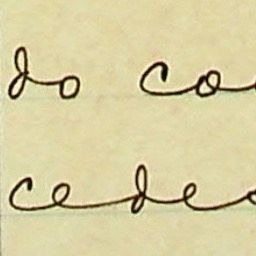 do co
cede